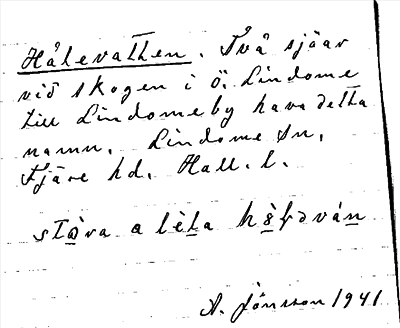 Hålevatten. Två sjöar
vid skogen i ö. Lindome
till Lindomeby hava detta
namn. Lindome sn,
Fjäre hd. Hall. l.
stòva a lèla
A. Jönsson 1941